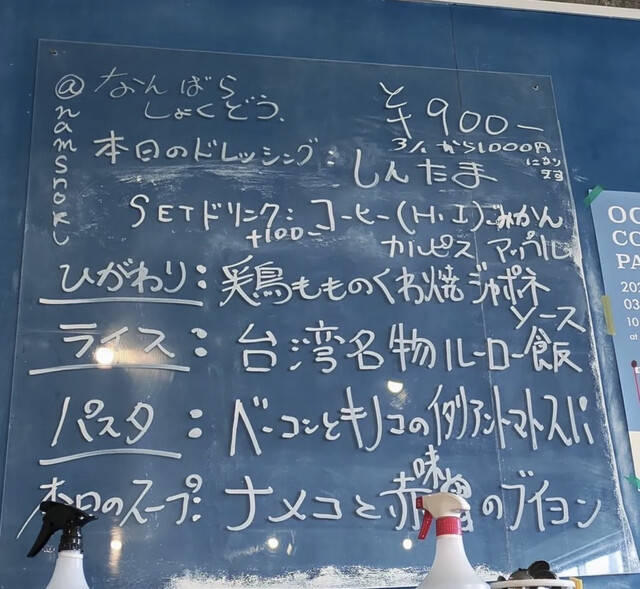 @namsnoku
なんばら
しょくどう、
¥900ー
3/1から1000円
になり
ます
本日のドレッシング:しんたま
SETドリンク:コーヒー(H,I)みかん
+100ー カルピス アップル
ひがわり:鶏もものくわ焼ジャポネ
ソース
ライス:台湾名物ルーロー飯
パスタ:ベーコンとキノコの伊リアントマトスパ
本日のスープ:ナメコと赤味噌のブイヨン
OC
CO
PA
202
03
10
at